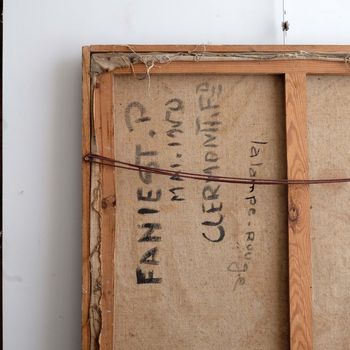 FANIEST.P
MAI.1950
CLERMONT.FD
la lampe-Rouge